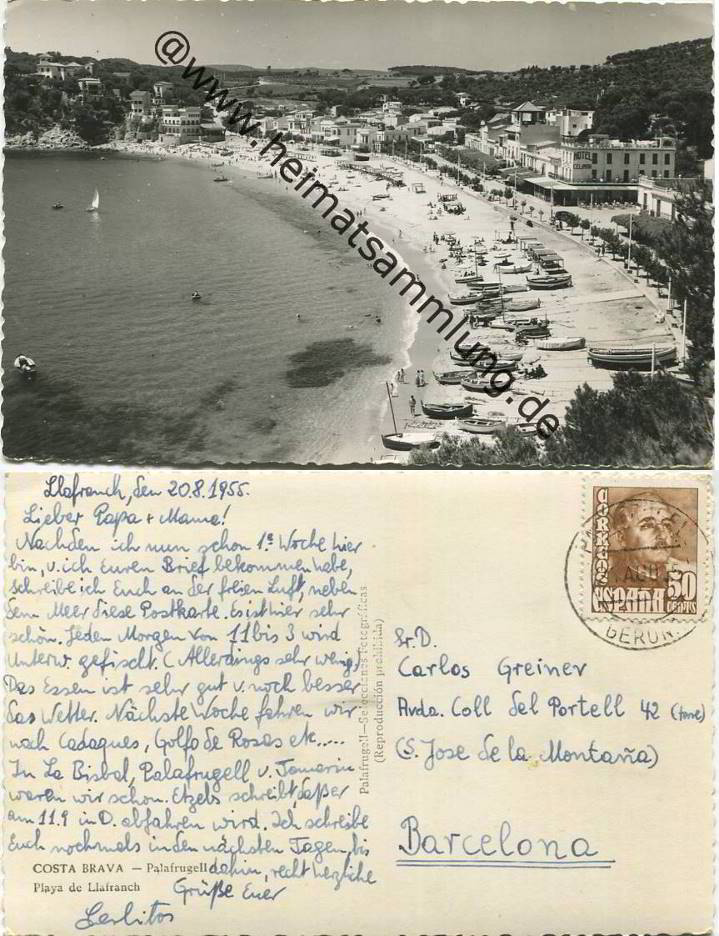 @www.heimatsammlung.de
HOTEL
Llafranch, den 20.8.1955.
Lieber Papa + Mama!
Nachden ich nun schon 1e Woche hier
bin, u. ich Euren Brief bekommen habe,
schreibe ich Euch an der freien Luft, neben
dem Meer diese Postkarte. Es ist hier sehr
schön. Jeden Morgen von 11 bis 3 wird
Unterw. gefischt. (Allerdings sehr wenig)
Das Essen ist sehr gut u. noch besser
das Wetter. Nächste Woche fahren wir
nach Cadaques, Golfo de Rosas etc.....
In La Bisbal, Palafrugell u. Tamariu
waren wir schon. Etzels schreibt, daß er
am 11.9 in D. abfahren wird. Ich schreibe
Euch nochmals in den nächsten Tagen, bis
dahin, recht herzliche
Grüße Euer
Carlitos
COSTA BRAVA — Palafrugell
Playa de Llafranch
Palafrugell—Selecciones fotográficas
(Reproducción prohibida)
CORREOS
ESPAÑA
50
CENTS
AGO
GERON
Sr. D.
Carlos Greiner
Avda. Coll del Portell 42 (torre)
(S. Jose de la Montaña)
Barcelona